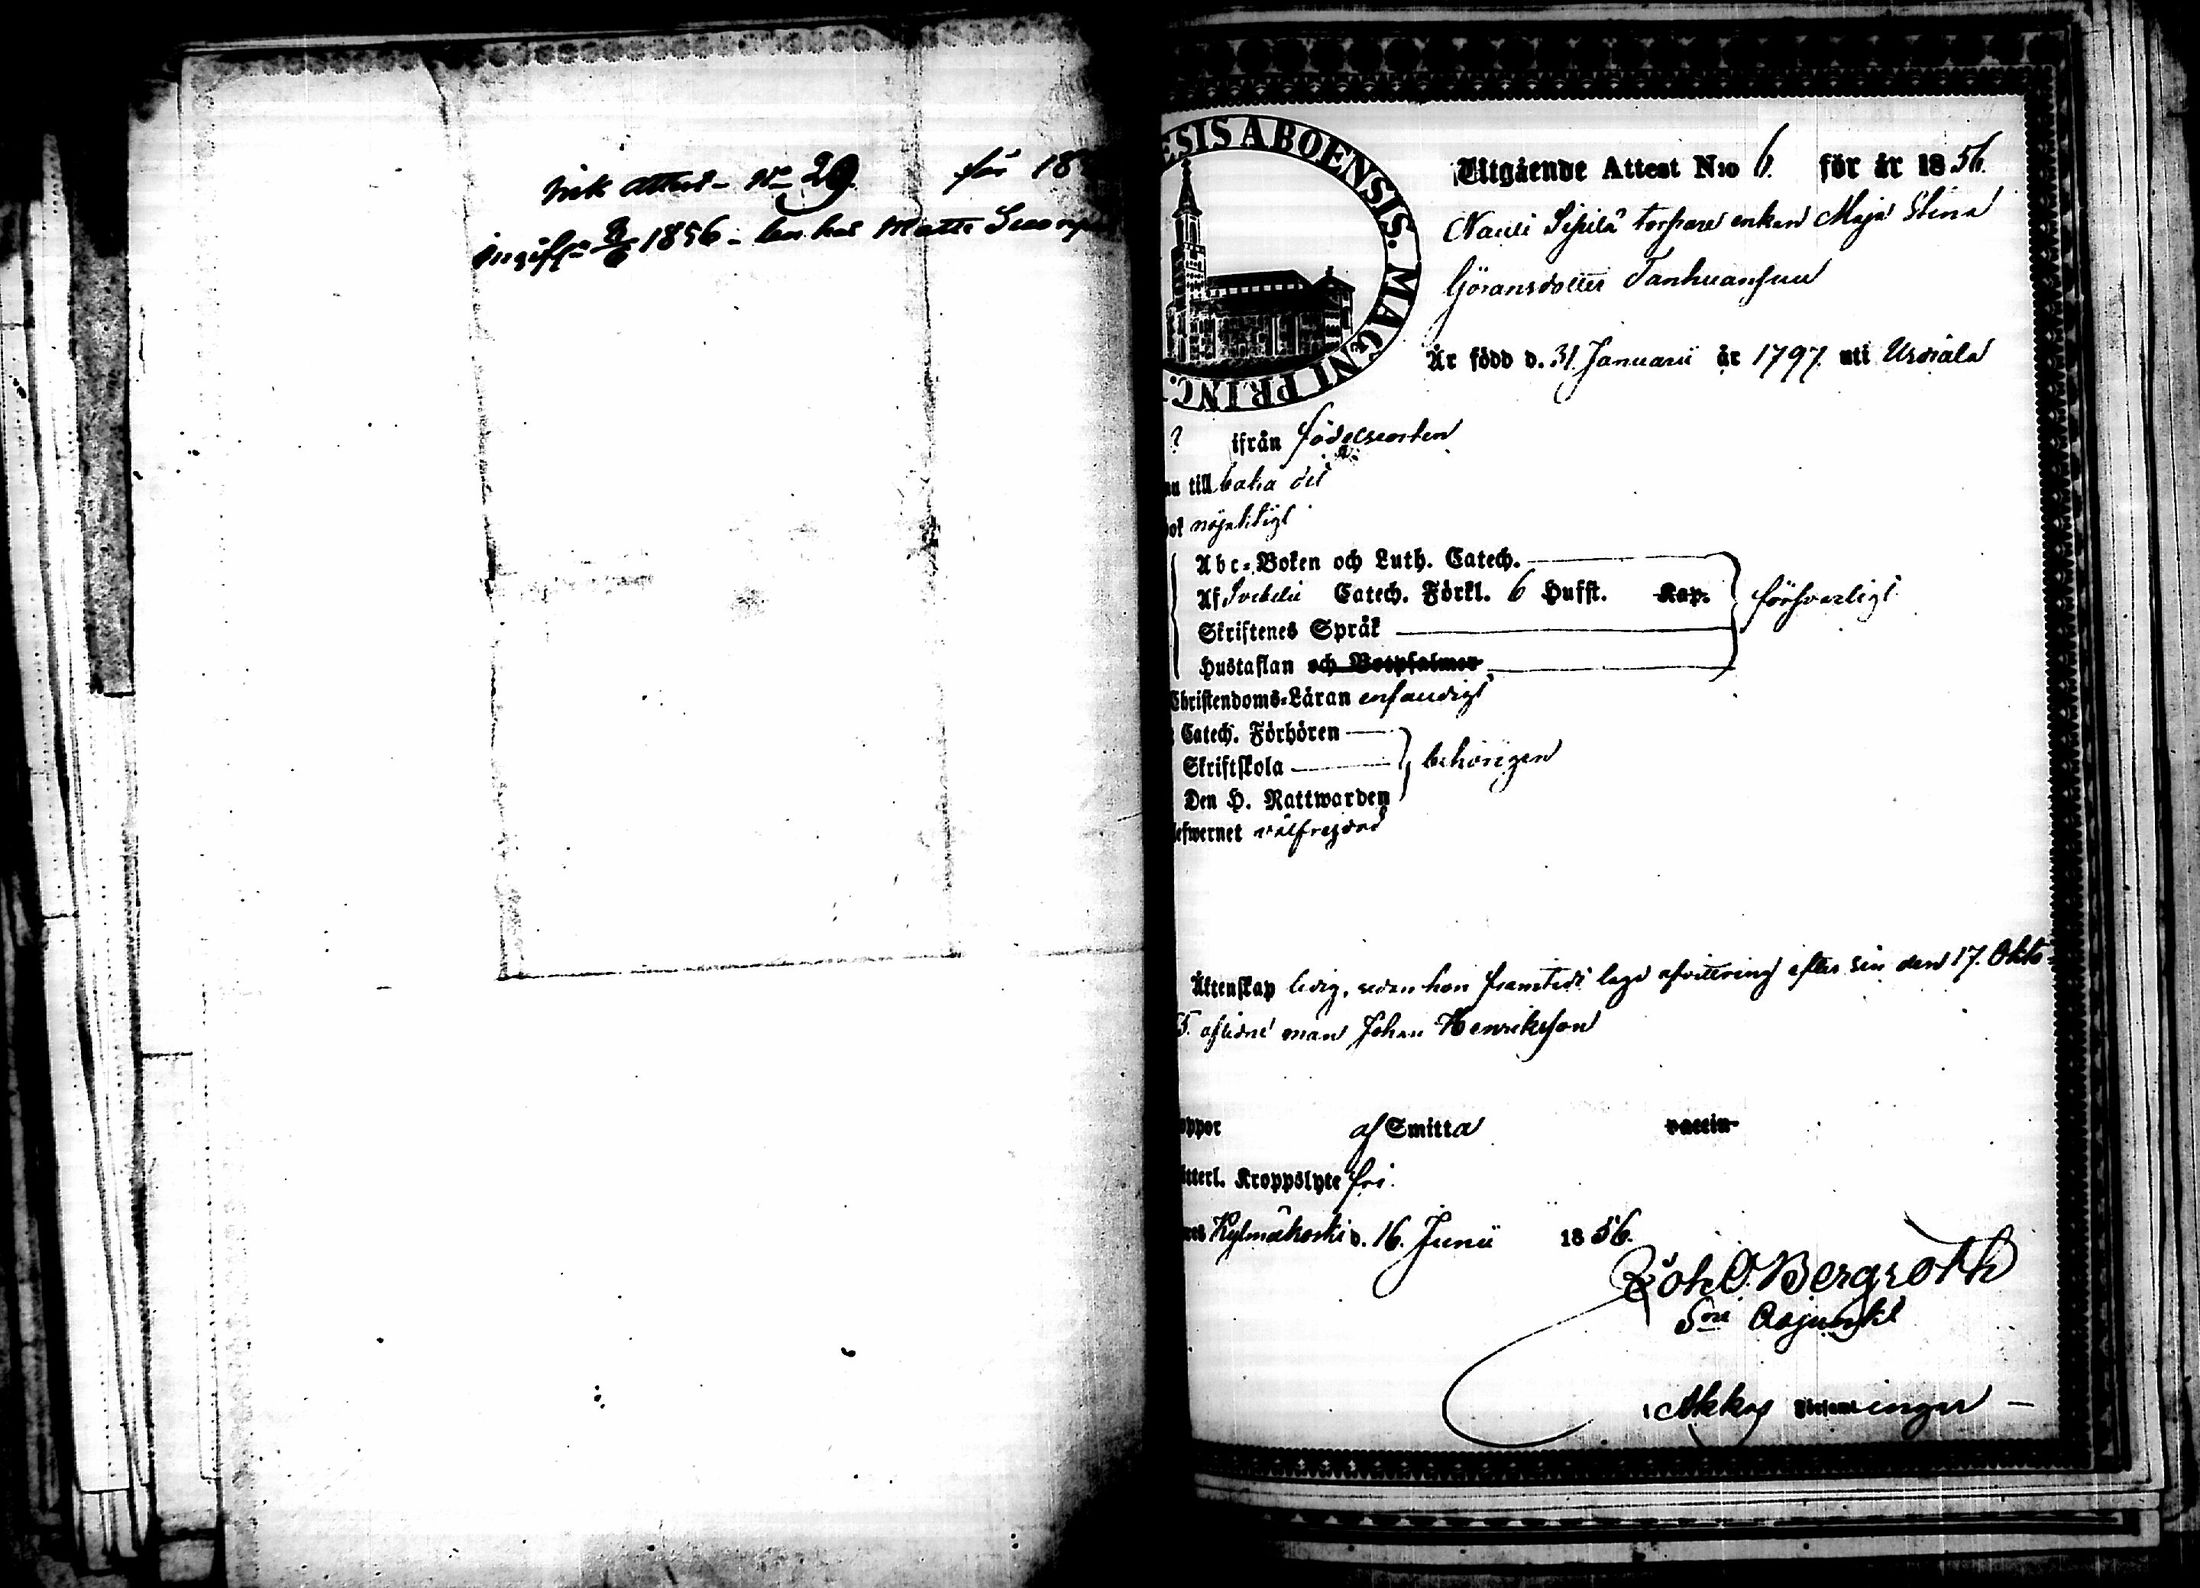 attest N:o 29 för 18
1856 - hos Matts
ESIS ABOENSIS. MAGNI PRINC.
Utgående Attest N:o 6. för år 1856.
Nauli Sipilä torpare enkan Maja Stina
Göransdotter Tanhuanpuu
Är född d. 31. Januarii år 1797. uti Urdiala
ifrån födelseorten
till baka dit
nöjaktigt
Abc-Boken och Luth. Catech.
Af Svebelii Catech. Förkl. 6 Hufst. Kap.
försvarligt
Skriftenes Språk
Hustaflan och Botpsalmer
Christendoms-Läran enfaldigt
Catech. Förhören
Skriftskola
behörigen
Den H. Nattwarden
efwernet välfrejdad
Äktenskap ledig, sedan hon framtedt laga afvittring efter sin den 17. Okto-
55. aflidne man Johan Henriksson
oppor af Smitta vaccin
itterl. Kroppslyte fri.
Kylmäkoski d. 16. Junii 1856.
Joh. O. Bergroth
Adjunkt
Akkas